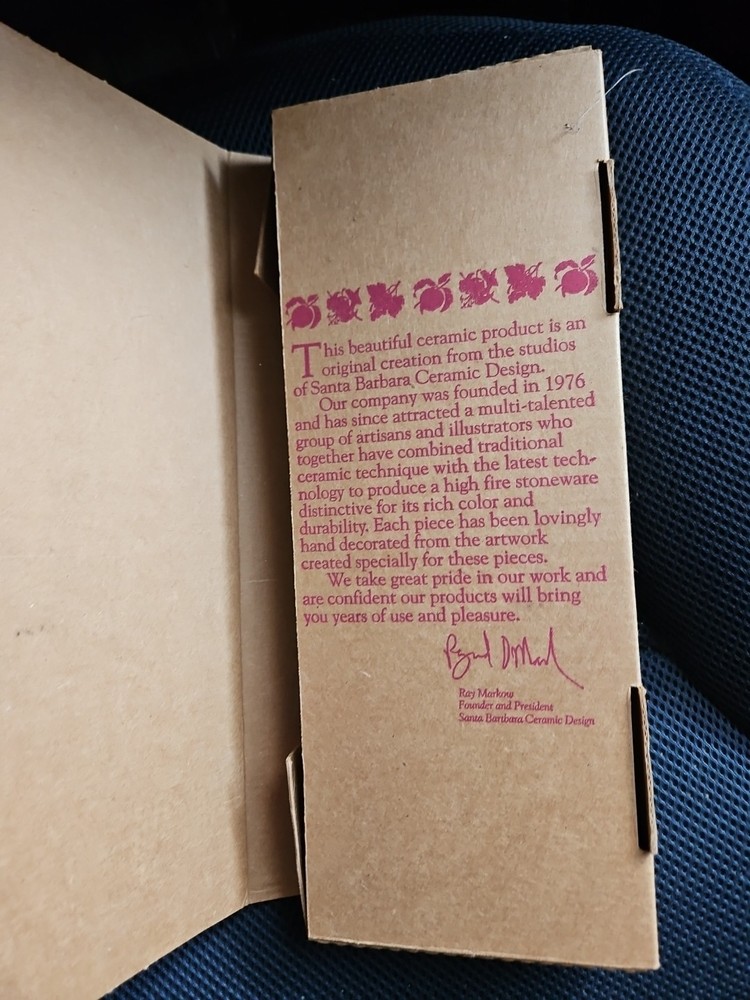 This beautiful ceramic product is an
original creation from the studios
of Santa Barbara Ceramic Design.
Our company was founded in 1976
and has since attracted a multi-talented
group of artisans and illustrators who
together have combined traditional
ceramic technique with the latest tech-
nology to produce a high fire stoneware
distinctive for its rich color and
durability. Each piece has been lovingly
hand decorated from the artwork
created specially for these pieces.
We take great pride in our work and
are confident our products will bring
you years of use and pleasure.
Ray Markow
Founder and President
Santa Barbara Ceramic Design